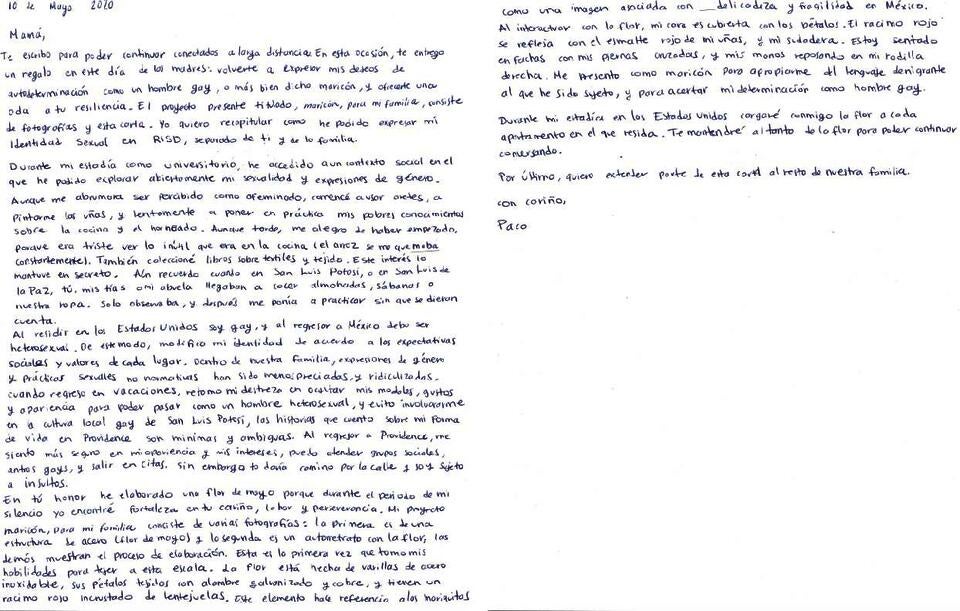 10 de Mayo 2020
Mamá,
Te escribo para poder continuar conectados a larga distancia. En esta ocasión, te entrego
un regalo en este día de las madres: volverte a expresar mis deseos de
autodeterminación como un hombre gay, o más bien dicho maricón, y ofrecerte una
oda a tu resiliencia. El proyecto presente titulado, maricón, para mi familia, consiste
de fotografías y esta carta. Yo quiero recapitular como he podido expresar mi
Identidad Sexual en RISD, separado de ti y de la familia.
Durante mi estadía como universitario, he accedido a un contexto social en el
que he podido explorar abiertamente mi sexualidad y expresiones de género.
Aunque me abrumara ser percibido como afeminado, comencé a usar aretes, a
pintarme las uñas, y lentamente a poner en práctica mis pobres conocimientos
sobre la cocina y el horneado. Aunque tarde, me alegro de haber empezado,
porque era triste ver lo inútil que era en la cocina (el arroz se me quemaba
constantemente). También coleccioné libros sobre textiles y tejido. Este interés lo
mantuve en secreto. Aún recuerdo cuando en San Luis Potosí, o en San Luis de
la Paz, tú, mis tías o mi abuela llegaban a cocer almohadas, sábanas o
nuestra ropa. Solo observaba, y después me ponía a practicar sin que se dieran
cuenta.
Al residir en los Estados Unidos soy gay, y al regresar a México debo ser
heterosexual. De este modo, modifico mi identidad de acuerdo a las expectativas
sociales y valores de cada lugar. Dentro de nuestra familia, expresiones de género
y prácticas sexuales no normativas han sido menospreciadas y ridiculizadas.
Cuando regreso en vacaciones, retomo mi destreza en ocultar mis modales, gustos
y apariencia para poder pasar como un hombre heterosexual, y evito involucrarme
en la cultura local gay de San Luis Potosí, las historias que cuento sobre mi forma
de vida en Providence son mínimas y ambiguas. Al regresar a Providence, me
siento más seguro en mi apariencia y mis intereses, puedo atender grupos sociales,
antros gays, y salir en citas. Sin embargo todavía camino por la calle y soy sujeto
a insultos.
En tú honor he elaborado una flor de mayo porque durante el periodo de mi
silencio yo encontré fortaleza en tu cariño, labor y perseverancia. Mi proyecto
maricón, para mi familia consiste de varias fotografías: la primera es de una
estructura de acero (flor de mayo) y la segunda es un autorretrato con la flor, las
demás muestran el proceso de elaboración. Esta es la primera vez que tomo mis
habilidades para tejer a esta escala. La flor está hecha de varillas de acero
inoxidable, sus pétalos tejidos con alambre galvanizado y cobre, y tienen un
racimo rojo incrustado de lentejuelas. Este elemento hace referencia a los
como una imagen asociada con delicadeza y fragilidad en México.
Al interactuar con la flor, mi cara es cubierta con los pétalos. El racimo rojo
se refleja con el esmalte rojo de mi uñas, y mi sudadera. Estoy sentado
en fachas con mis piernas cruzadas, y mis manos reposando en mi rodilla
derecha. Me presento como maricón para apropiarme del lenguaje denigrante
al que he sido sujeto, y para acertar mi determinación como hombre gay.
Durante mi estadía en los Estados Unidos cargaré conmigo la flor a cada
apartamento en el que resida. Te mantendré al tanto de la flor para poder continuar
conversando.
Por último, quiero extender parte de esta carta al resto de nuestra familia.
con cariño,
Paco